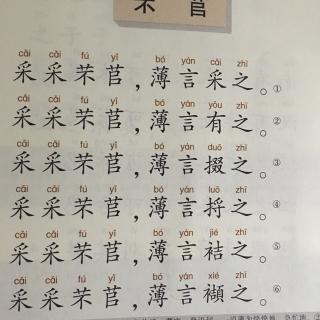 芣 苢
cǎi cǎi fú yǐ bó yán cǎi zhī
采 采 芣 苢 ，薄 言 采 之 。①
cǎi cǎi fú yǐ bó yán yǒu zhī
采 采 芣 苢 ，薄 言 有 之 。②
cǎi cǎi fú yǐ bó yán duō zhī
采 采 芣 苢 ，薄 言 掇 之 。③
cǎi cǎi fú yǐ bó yán luō zhī
采 采 芣 苢 ，薄 言 捋 之 。④
cǎi cǎi fú yǐ bó yán jié zhī
采 采 芣 苢 ，薄 言 袺 之 。⑤
cǎi cǎi fú yǐ bó yán xié zhī
采 采 芣 苢 ，薄 言 襭 之 。⑥